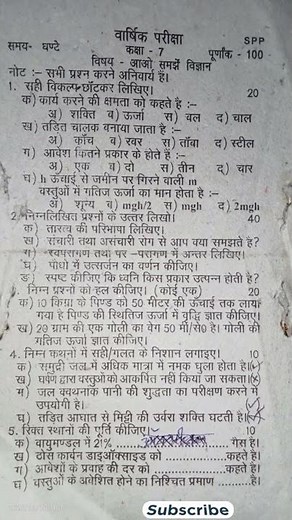 वार्षिक परीक्षा
SPP
समय- घण्टे
कक्षा - 7
पूर्णांक - 100
विषय - आओ समझें विज्ञान
नोट :- सभी प्रश्न करने अनिवार्य हैं।
1. सही विकल्प छाँटकर लिखिए। 20
क) कार्य करने की क्षमता को कहते है :-
अ) शक्ति ब) ऊर्जा स) बल द) चाल
ख) तड़ित चालक बनाया जाता है :-
अ) काँच ब) रबर स) ताँबा द) स्टील
ग) आवेश कितने प्रकार के होते है :-
अ) एक ब) दो स) तीन द) चार
घ) h ऊँचाई से जमीन पर गिरने वाली m
वस्तुओं में गतिज ऊर्जा का मान होता है :-
अ) शून्य ब) mgh/2 स) mgh द) 2mgh
2. निम्नलिखित प्रश्नों के उत्तर लिखो। 40
क) तारत्व की परिभाषा लिखिए।
ख) संचारी तथा असंचारी रोग से आप क्या समझते है?
ग) स्वपरागण तथा पर -परागण में अन्तर लिखिए।
घ) पौधों में उत्सर्जन का वर्णन कीजिए।
ङ) स्पष्ट कीजिए कि ध्वनि किस प्रकार उत्पन्न होती है?
3. निम्न प्रश्नों को हल कीजिए। (कोई एक) 20
क) 10 किग्रा के पिण्ड को 50 मीटर की ऊँचाई तक लाया
गया है पिण्ड की स्थितिज ऊर्जा में वृद्धि ज्ञात कीजिए।
ख) 20 ग्राम की एक गोली का वेग 50 मी/से0 है। गोली की
गतिज ऊर्जा ज्ञात कीजिए।
4. निम्न कथनों में सही/गलत के निशान लगाइए। 10
क) समुद्री जल में अधिक मात्रा में नमक घुला होता है।
ख) घर्षण द्वारा वस्तुओं को आकर्षित नहीं किया जा सकता।
ग) जल क्वथनांक पानी की शुद्धता का परीक्षण करने में
उपयोगी है।
घ) तड़ित आघात से मिट्टी की उर्वरा शक्ति घटती है।
5. रिक्त स्थानों की पूर्ति कीजिए। 10
क) वायुमण्डल में 21% ............ गैस है।
ख) ठोस कार्बन डाइऑक्साइड को ............कहते है।
ग) आवेशों के प्रवाह की दर को ............कहते है।
घ) वस्तुओं के अवेशित होने का निश्चित प्रमाण ............ है।
Subscribe